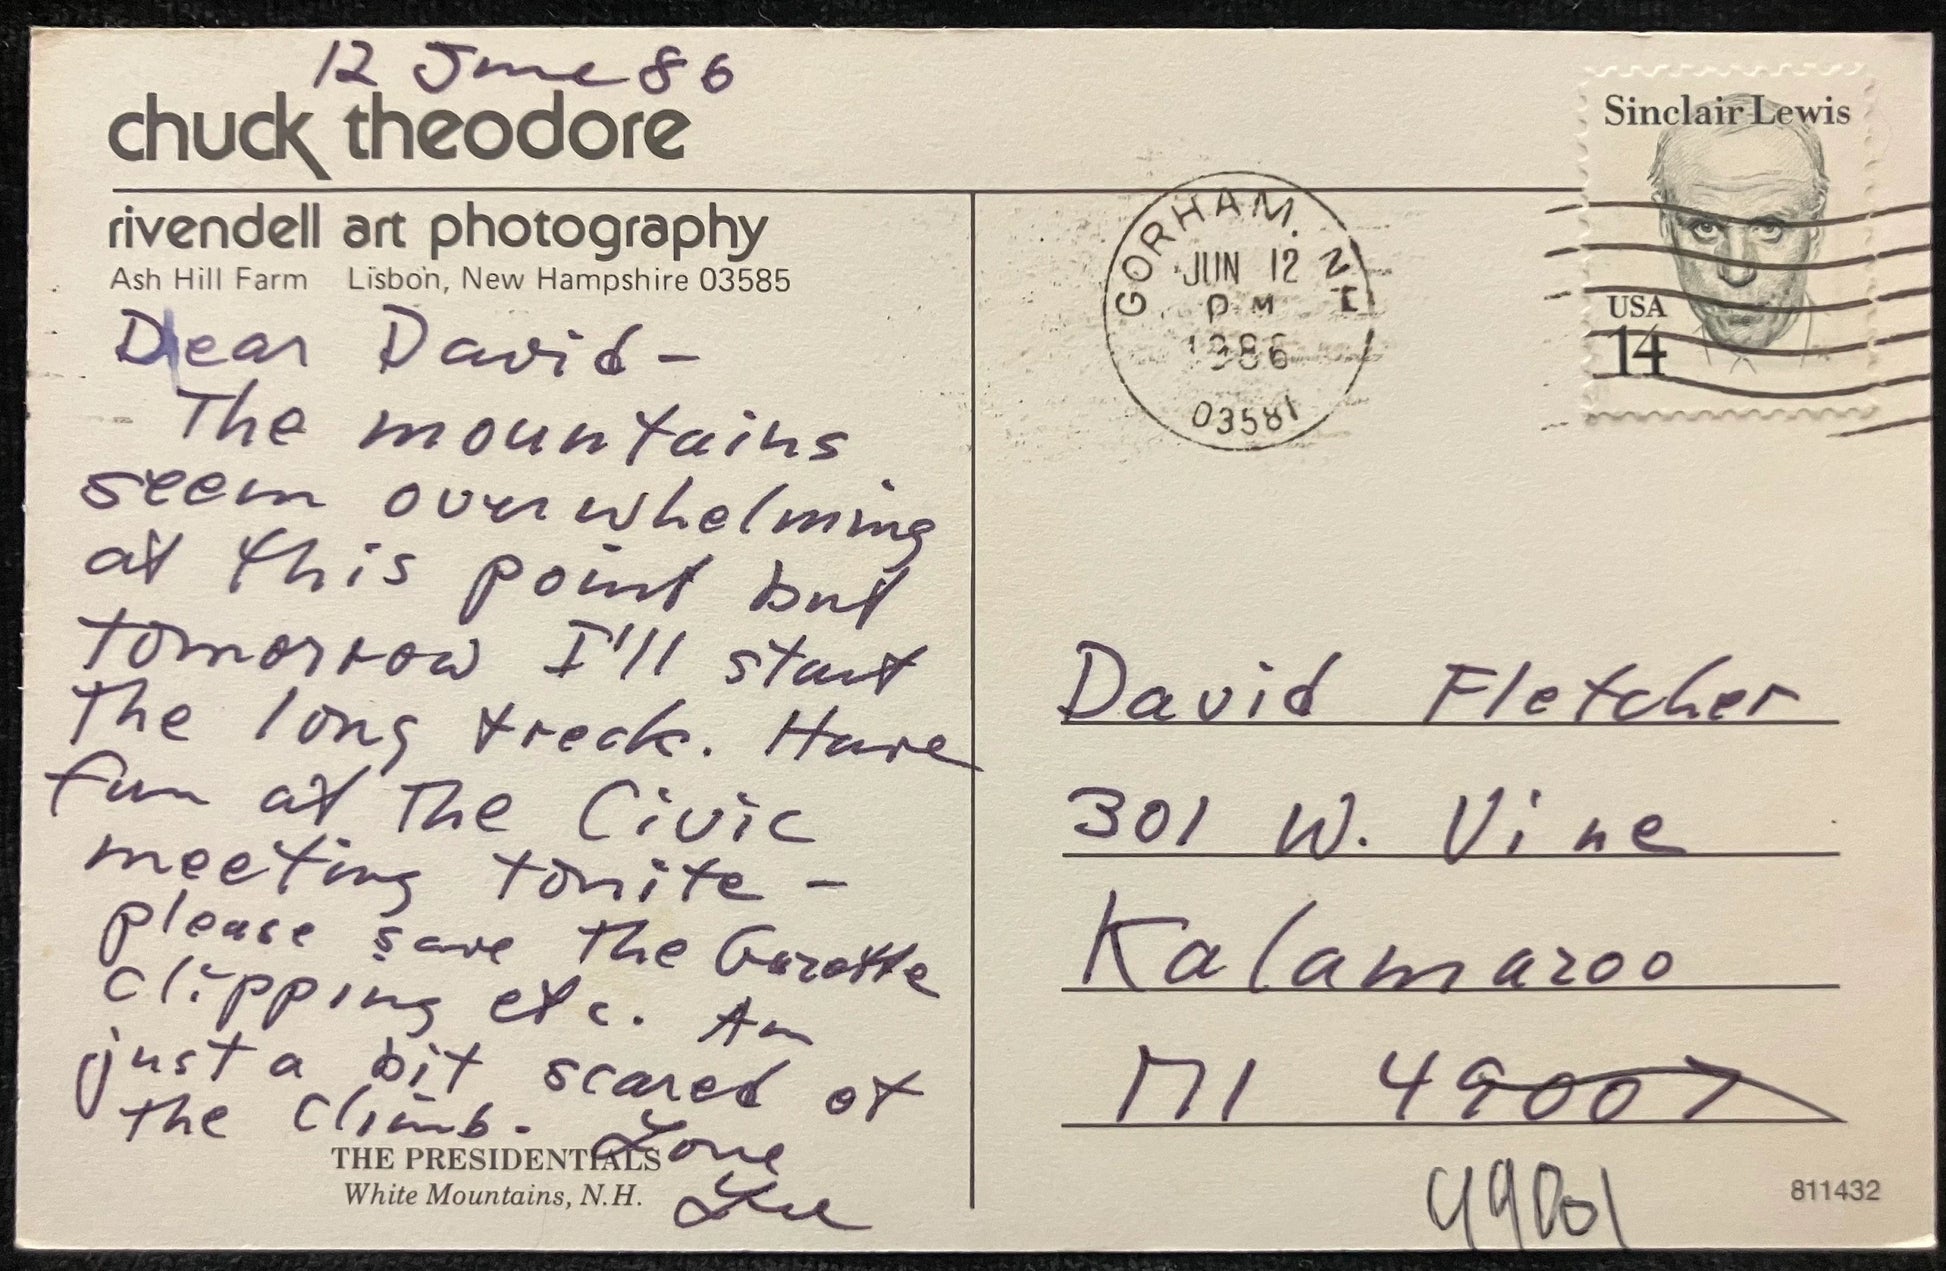 12 June 86
chuck theodore
rivendell art photography
Ash Hill Farm Lisbon, New Hampshire 03585
Dear David-
The mountains
seem overwhelming
at this point but
tomorrow I'll start
the long treck. Have
fun at the Civic
meeting tonite -
please save the Gazette
clipping etc. Am
just a bit scared of
the climb. Love
THE PRESIDENTIALS
White Mountains, N.H.
GORHAM, NH
JUN 12
PM
1986
03581
Sinclair Lewis
USA
14
David Fletcher
301 W. Vine
Kalamazoo
MI 49007
49001
811432